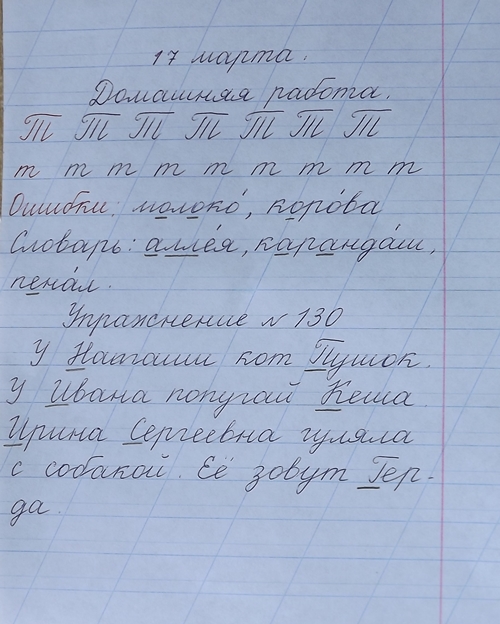 17 марта.
Домашняя работа.
Т Т Т Т Т Т Т
т т т т т т т т т
Ошибки: молоко́, коро́ва
Словарь: алле́я, каранда́ш,
пена́л.
Упражнение № 130
У Наташи кот Пушок.
У Ивана попугай Кеша
Ирина Сергеевна гуляла
с собакой. Её зовут Гер-
да.